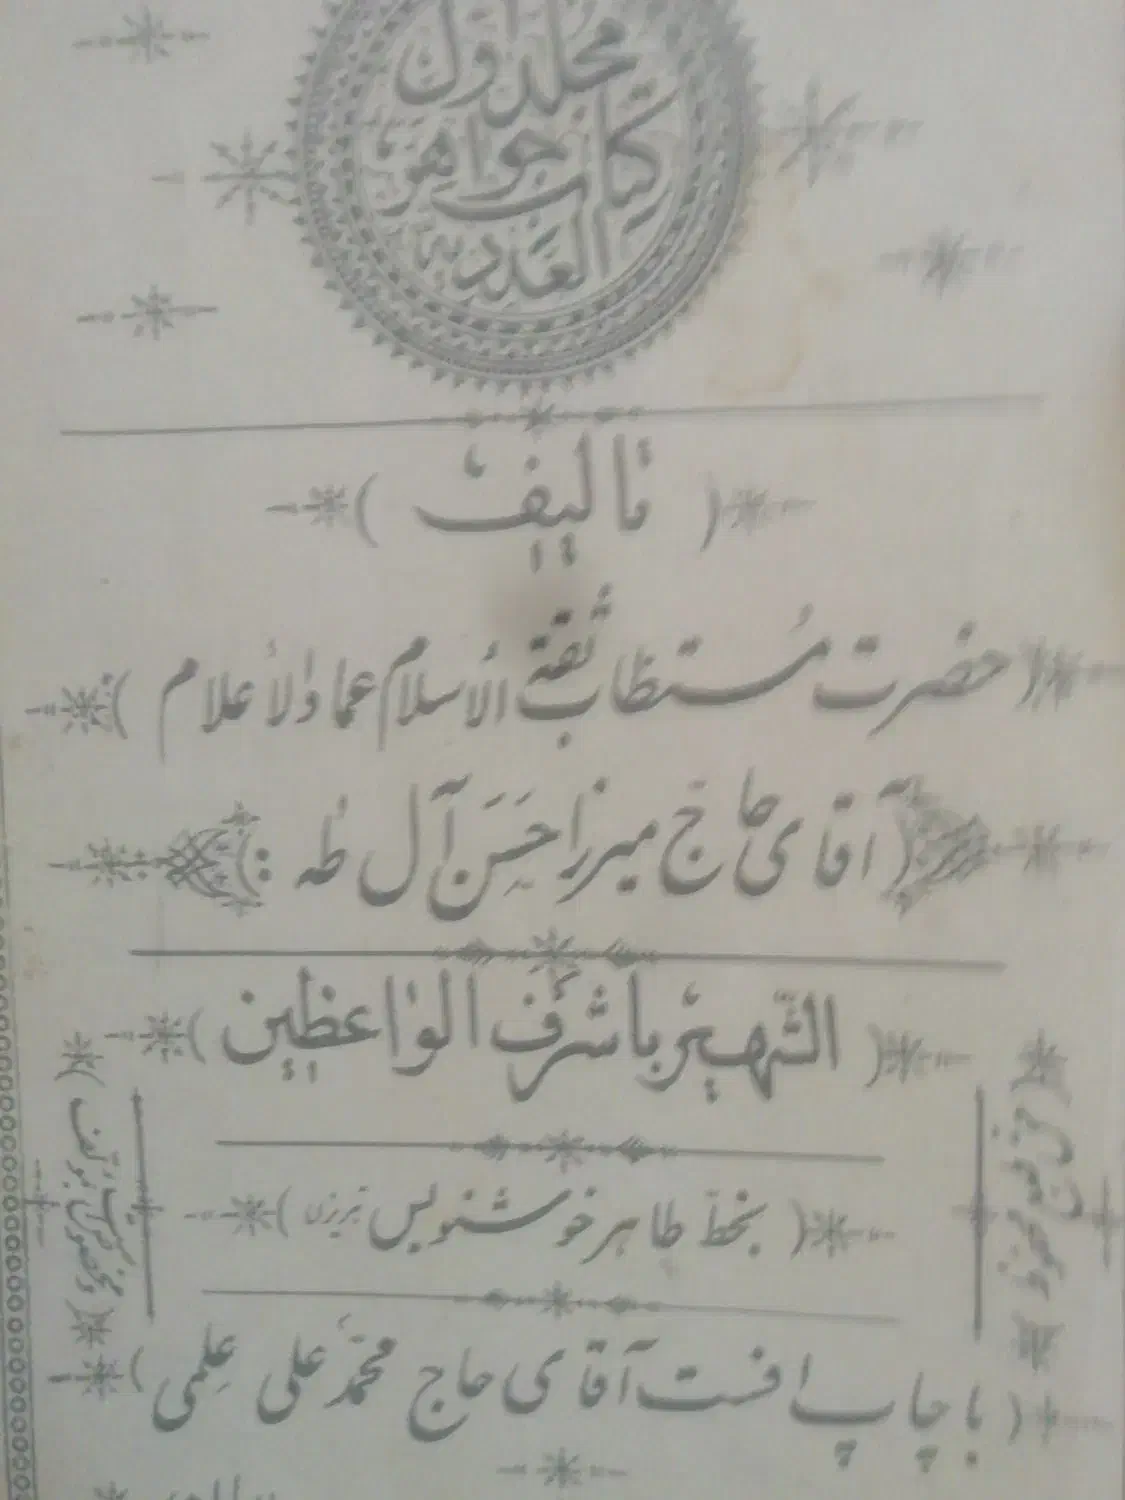 مجلد اول
کتاب جواهر
العددیة
تألیف
(حضرت مُستطاب ثقة الأسلام عماد الأعلام)
(آقای حاج میرزا حَسَن آل طه)
(الشهیر باشرف الواعظین)
(بخطّ طاهر خوشنویس تبریزی)
حق طبع محفوظ
مخصوص مؤلف
(با چاپ افست آقای حاج محمّد علی عِلمی)